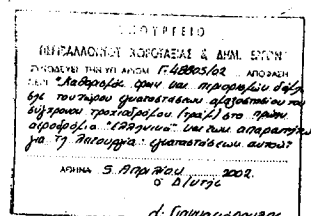 ΥΠΟΥΡΓΕΙΟ
ΠΕΡΙΒΑΛΛΟΝΤΟΣ ΧΩΡΟΤΑΞΙΑΣ & ΔΗΜ. ΕΡΓΩΝ
ΣΥΝΟΔΕΥΕΙ ΤΗΝ ΥΠ ΑΡΙΘΜ. Γ.48805/02 ΑΠΟΦΑΣΗ
"Καθορισμός όρων και περιορισμών δόμη-
σης του χώρου εγκαταστάσεων αμαξοστασίου του
σύγχρονου τροχιοδρόμου (τραμ) στο πρώην
αεροδρόμιο "Ελληνικό" και των απαραιτήτων
για τη λειτουργία εγκαταστάσεων αυτού"
ΑΘΗΝΑ 5 Απριλίου 2002
Ο Δ/ντής